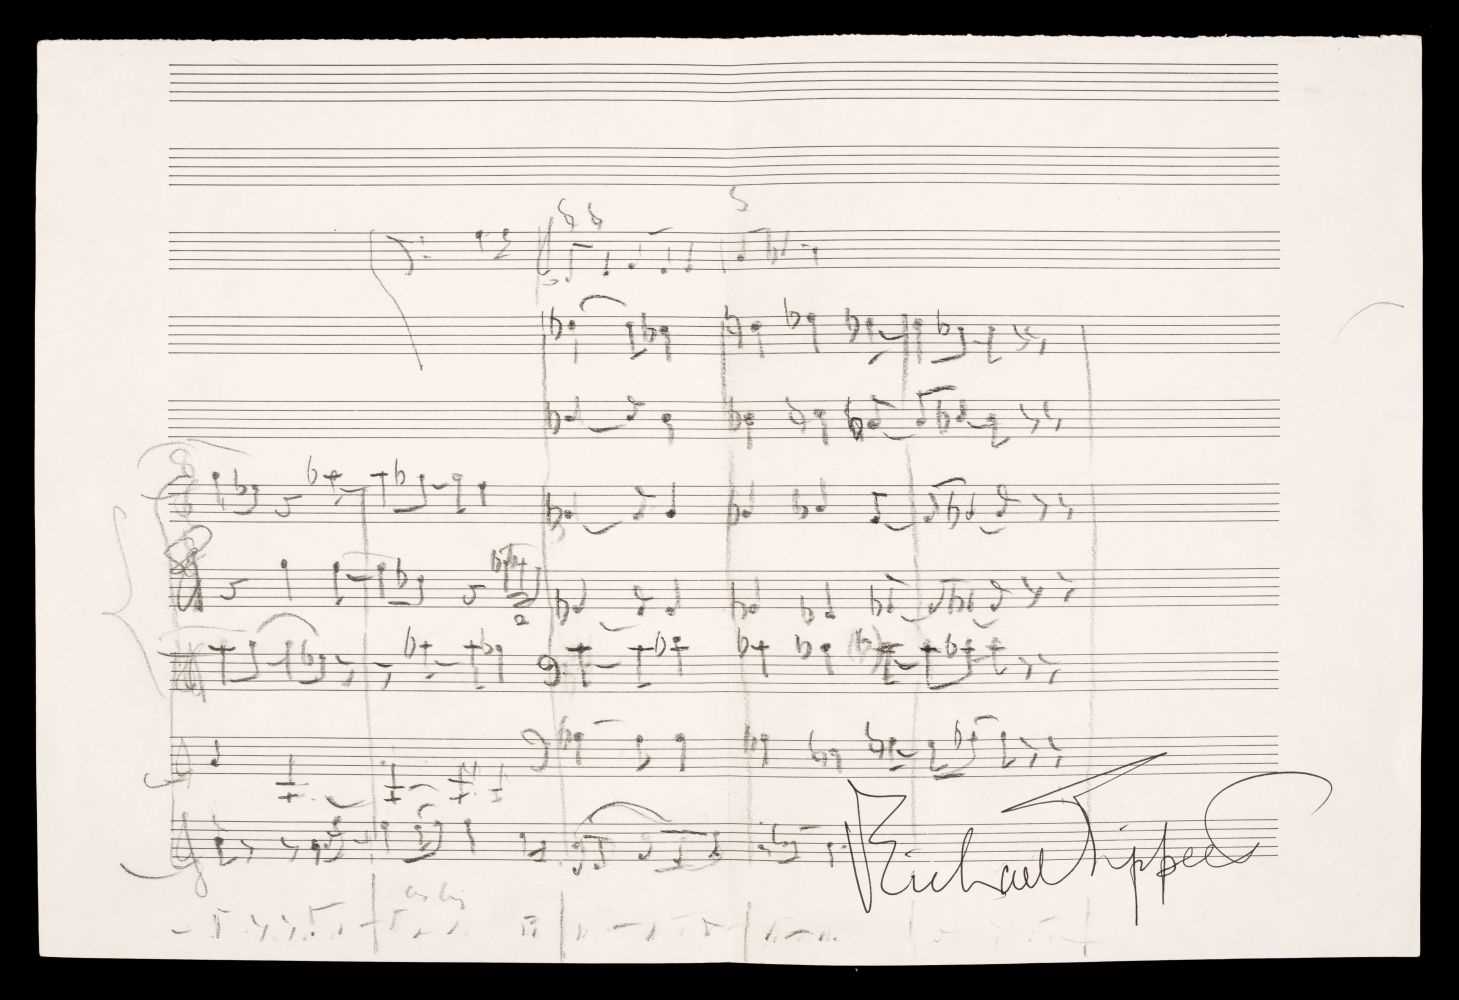 2
Michael Tippett